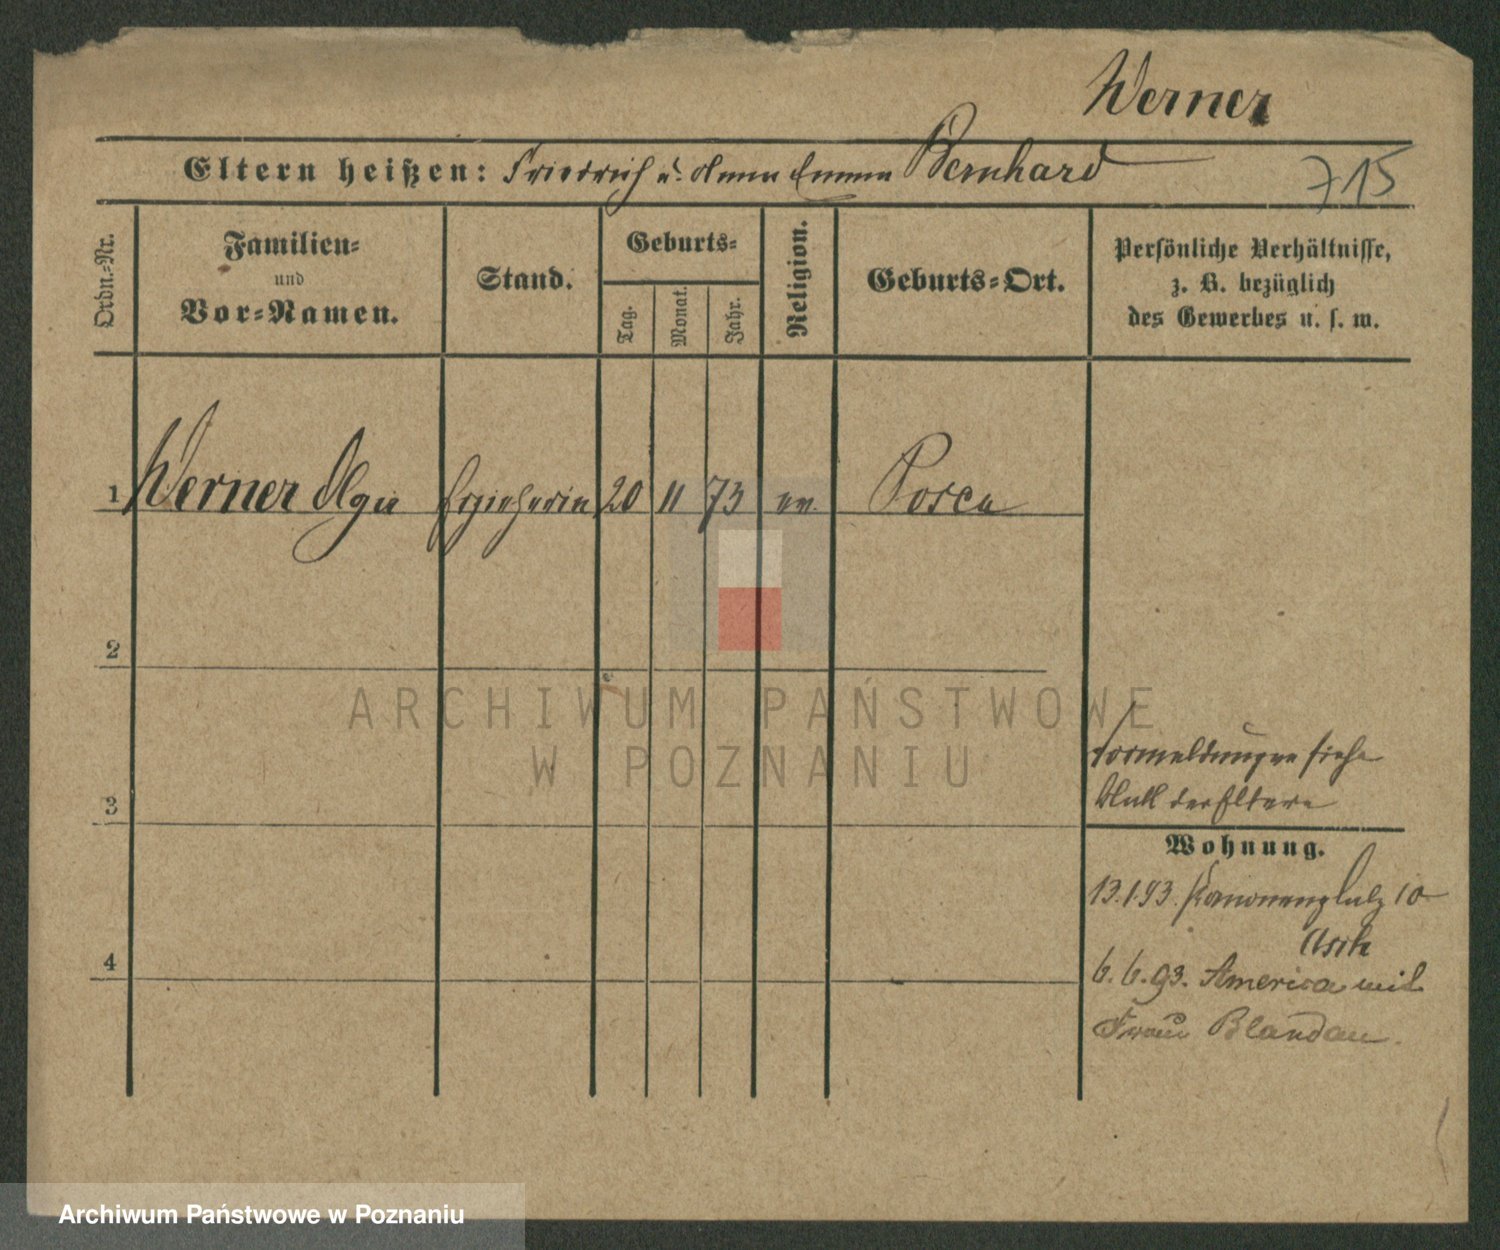 Werner
Eltern heißen: Friedrich u. Anna Emma Bernhard
715
Ordn.=Nr.
Familien=
und
Vor=Namen.
Stand.
Geburts=
Tag.
Monat.
Jahr.
Religion.
Geburts=Ort.
Persönliche Verhältnisse,
z. B. bezüglich
des Gewerbes u. s. w.
1 Werner Olga Erzieherin 20 11 73 ev. Posen
2
3
4
Vormeldungen siehe
Blatt der Eltern
Wohnung.
13.1.93. Kanonenplatz 10
6.6.93. America mit
Frau Blandau.
ARCHIWUM PAŃSTWOWE
W POZNANIU
Archiwum Państwowe w Poznaniu